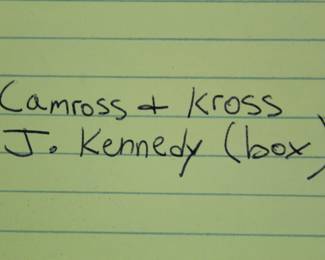 Camross + Kross
J. Kennedy (box)